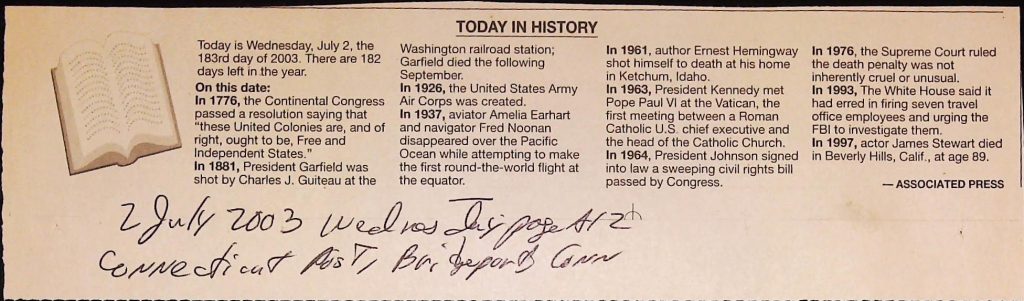 TODAY IN HISTORY
Today is Wednesday, July 2, the
183rd day of 2003. There are 182
days left in the year.
On this date:
In 1776, the Continental Congress
passed a resolution saying that
“these United Colonies are, and of
right, ought to be, Free and
Independent States.”
In 1881, President Garfield was
shot by Charles J. Guiteau at the
Washington railroad station;
Garfield died the following
September.
In 1926, the United States Army
Air Corps was created.
In 1937, aviator Amelia Earhart
and navigator Fred Noonan
disappeared over the Pacific
Ocean while attempting to make
the first round-the-world flight at
the equator.
In 1961, author Ernest Hemingway
shot himself to death at his home
in Ketchum, Idaho.
In 1963, President Kennedy met
Pope Paul VI at the Vatican, the
first meeting between a Roman
Catholic U.S. chief executive and
the head of the Catholic Church.
In 1964, President Johnson signed
into law a sweeping civil rights bill
passed by Congress.
In 1976, the Supreme Court ruled
the death penalty was not
inherently cruel or unusual.
In 1993, The White House said it
had erred in firing seven travel
office employees and urging the
FBI to investigate them.
In 1997, actor James Stewart died
in Beverly Hills, Calif., at age 89.
— ASSOCIATED PRESS
2 July 2003 page A12
Connecticut Post, Bridgeport, Conn